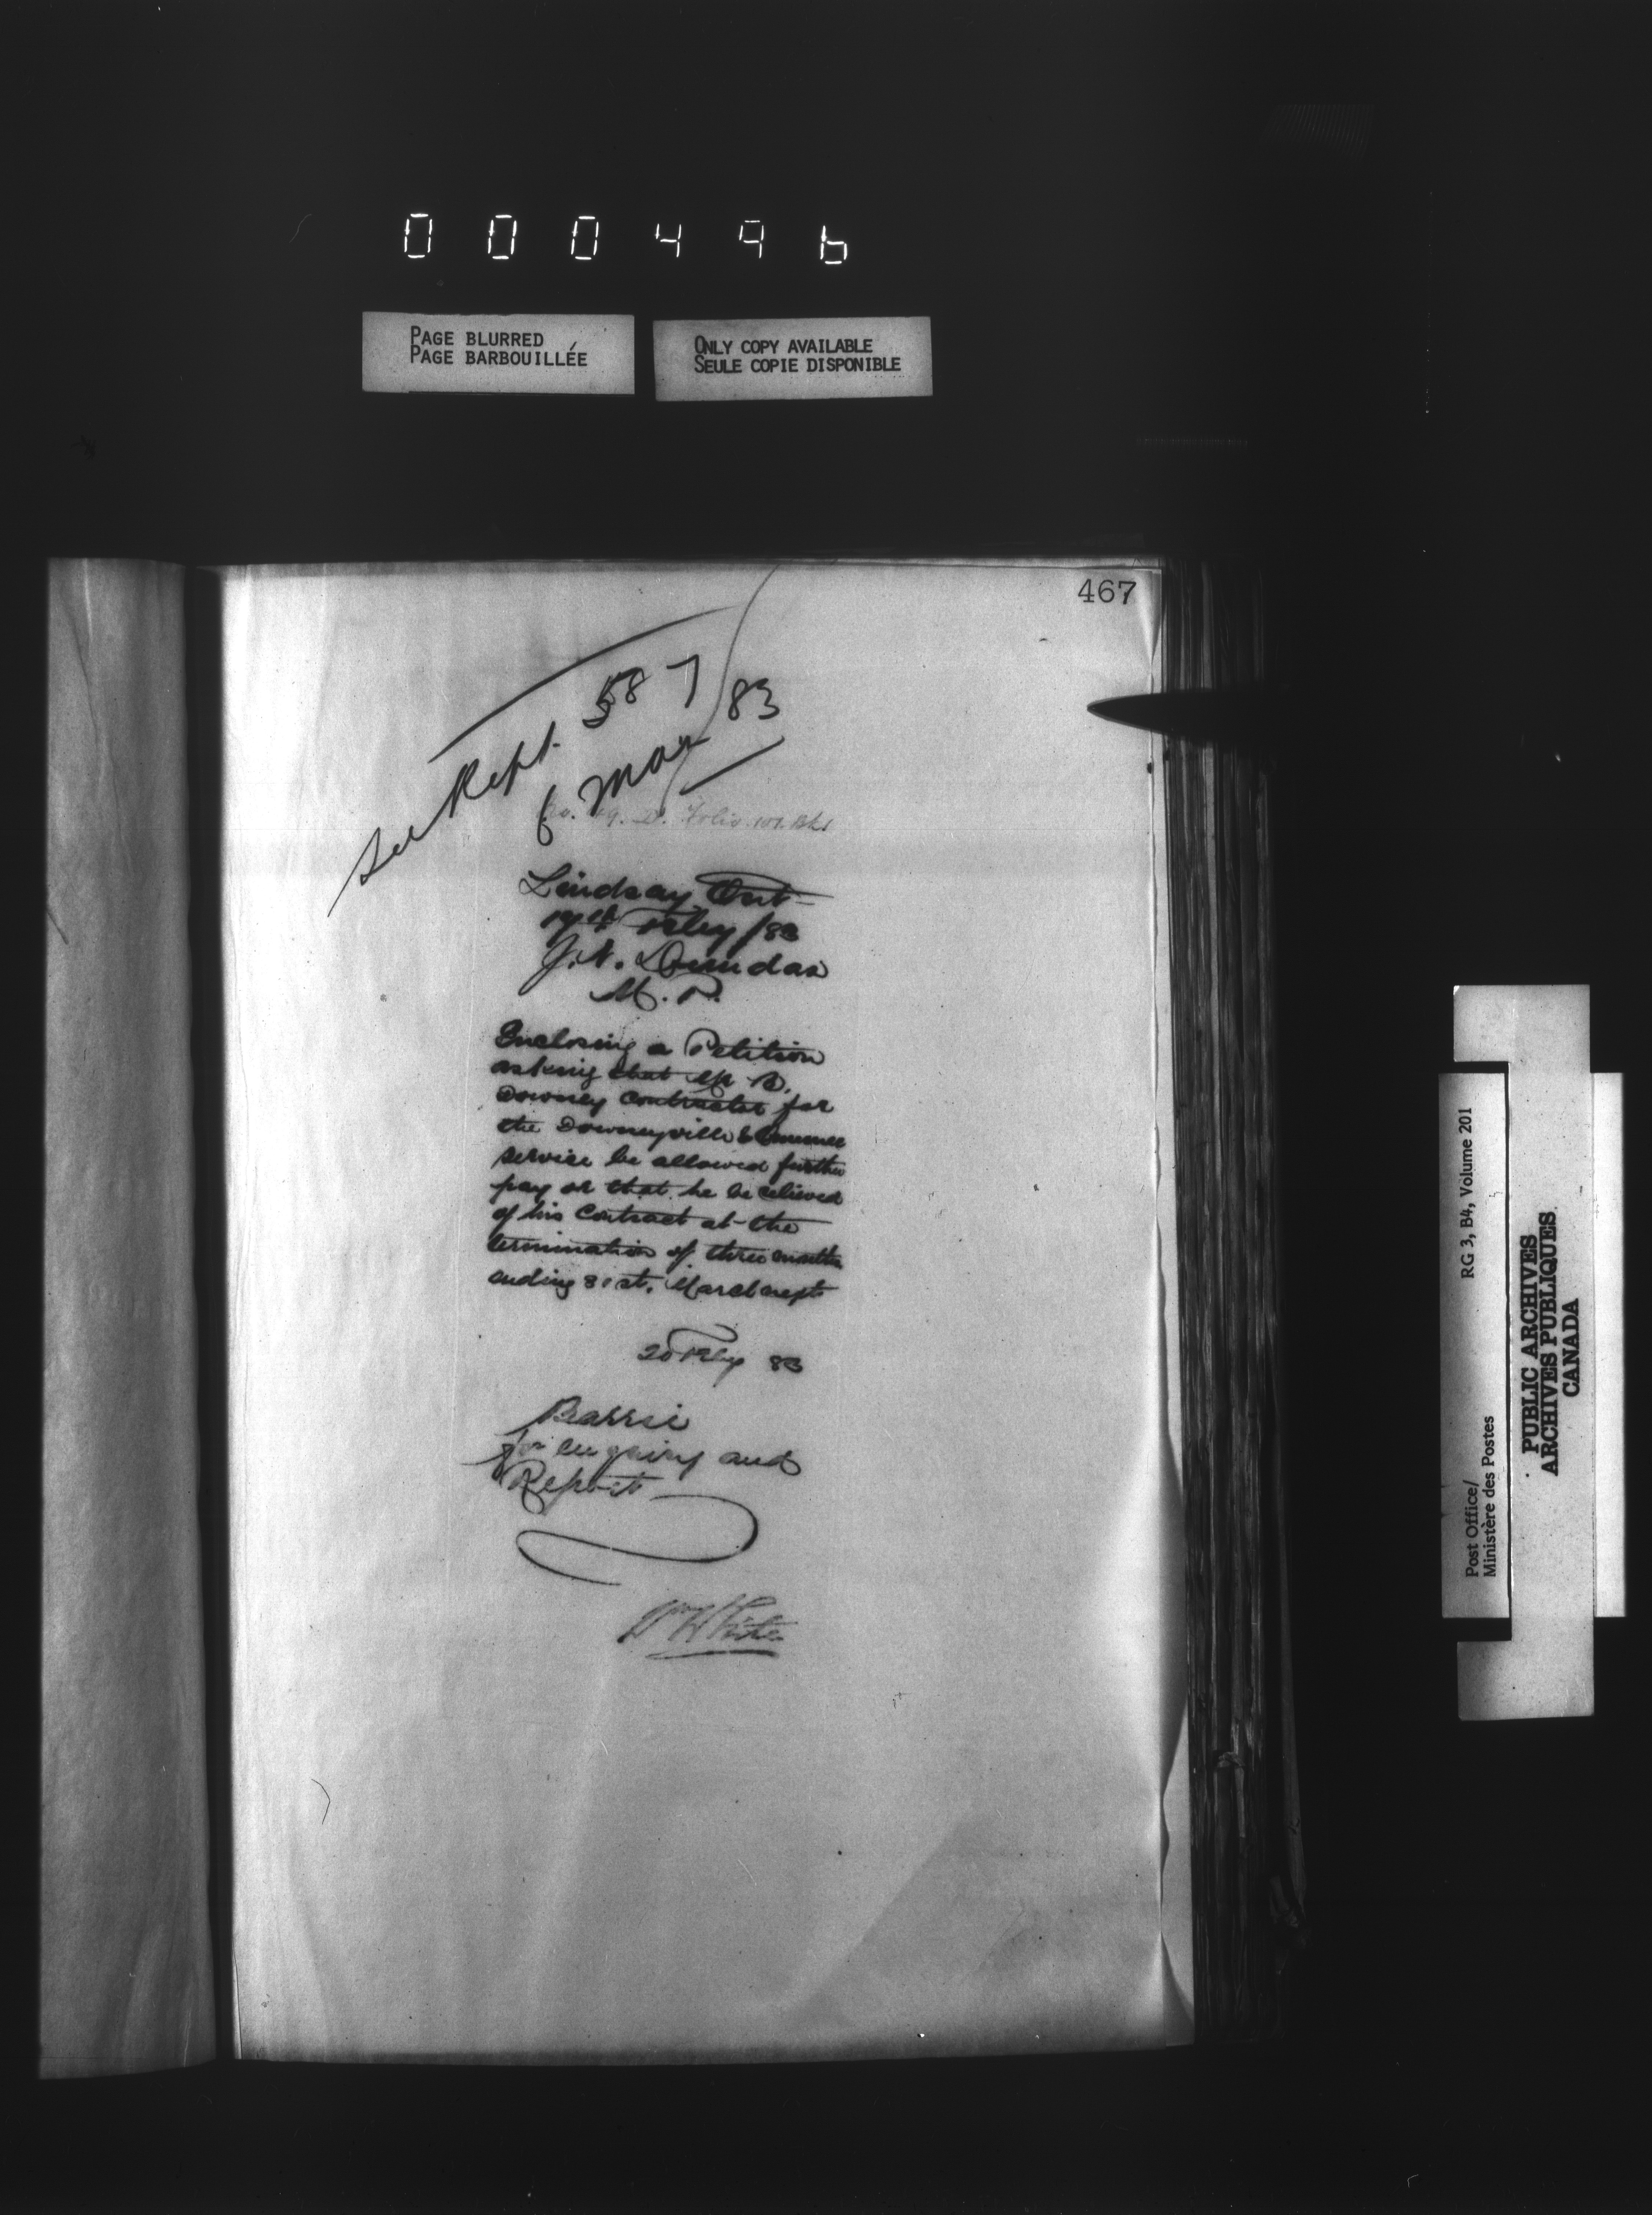 000496
PAGE BLURRED
PAGE BARBOUILLÉE
ONLY COPY AVAILABLE
SEULE COPIE DISPONIBLE
467
See Rept. 587
6 Mar 83
No. 49. D. Folio 101.
Lindsay Ont
17th Feby /83
J.N. Dundas
M. P.
Enclosing a Petition
asking that Mr
Downey Contractor for
the Downeyville & Omemee
service be allowed further
pay or that he be relieved
of his Contract at the
termination of three months
ending 31st. March next
20 Feby 83
Barrie
for enquiry and
Report
Wm White
Post Office/
Ministère des Postes
RG 3, B4, Volume 201
PUBLIC ARCHIVES
ARCHIVES PUBLIQUES
CANADA